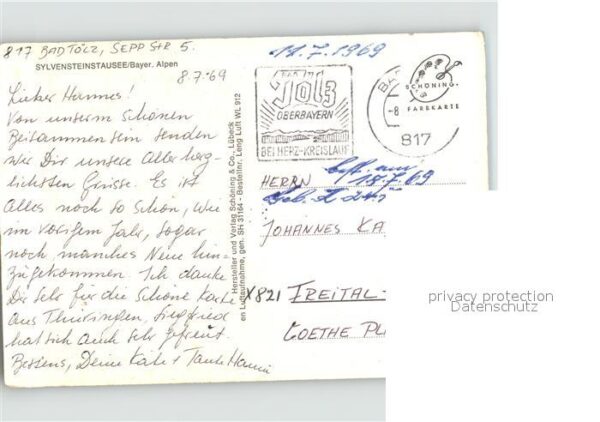 817 BAD TÖLZ, SEPP STR 5.
SYLVENSTEINSTAUSEE/Bayer. Alpen
8.7.69
Lieber Hannes!
Von unserm schönen
Beisammensein senden
wir Dir unsere Aller herz-
lichsten Grüsse. Es ist
Alles noch so schön, wie
im vorigem Jahr, sogar
noch manches Neue hin-
zugekommen. Ich danke
Dir sehr für die schöne Karte
aus Thüringen, Siegfried
hat sich auch sehr gefreut.
Bestens, Deine Käte + Tante Hanni
Hersteller und Verlag Schöning & Co., Lübeck
en Luftaufnahme, gen. SH 31164 - Bestellnr. Leng Luft WL 912
11.7.1969
BAD
Tölz
OBERBAYERN
BEI HERZ-KREISLAUF
-8
817
SCHÖNING
FARBKARTE
18.7.69
HERRN
JOHANNES KA
X821 FREITAL-
GOETHE PL
privacy protection
Datenschutz